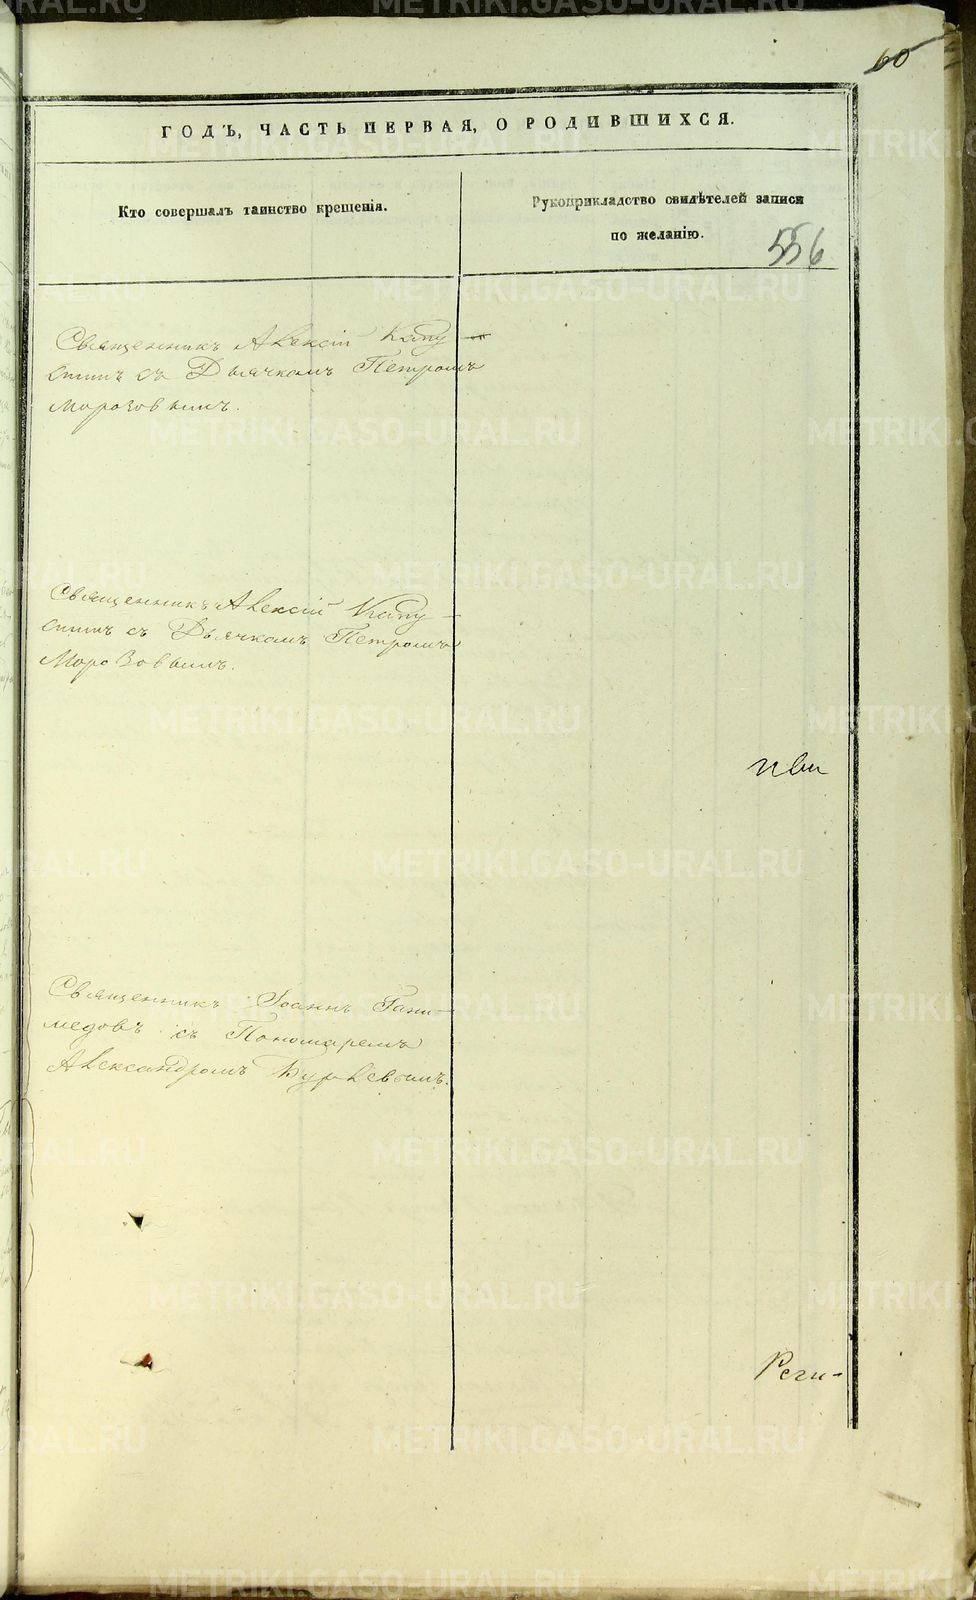 60
ГОДЪ, ЧАСТЬ ПЕРВАЯ, О РОДИВШИХСЯ.
Кто совершалъ таинство крещенія.
Рукоприкладство свидѣтелей записи
по желанію.
556
Священникъ Алексій Капу-
стинъ съ Дьячкомъ Петромъ
Морозовымъ.
Священникъ Алексій Капу-
стинъ съ Дьячкомъ Петромъ
Морозовымъ.
Священникъ Іоаннъ Гани-
медовъ съ Пономаремъ
Александромъ
Реги-
METRIKI.GASO-URAL.RU